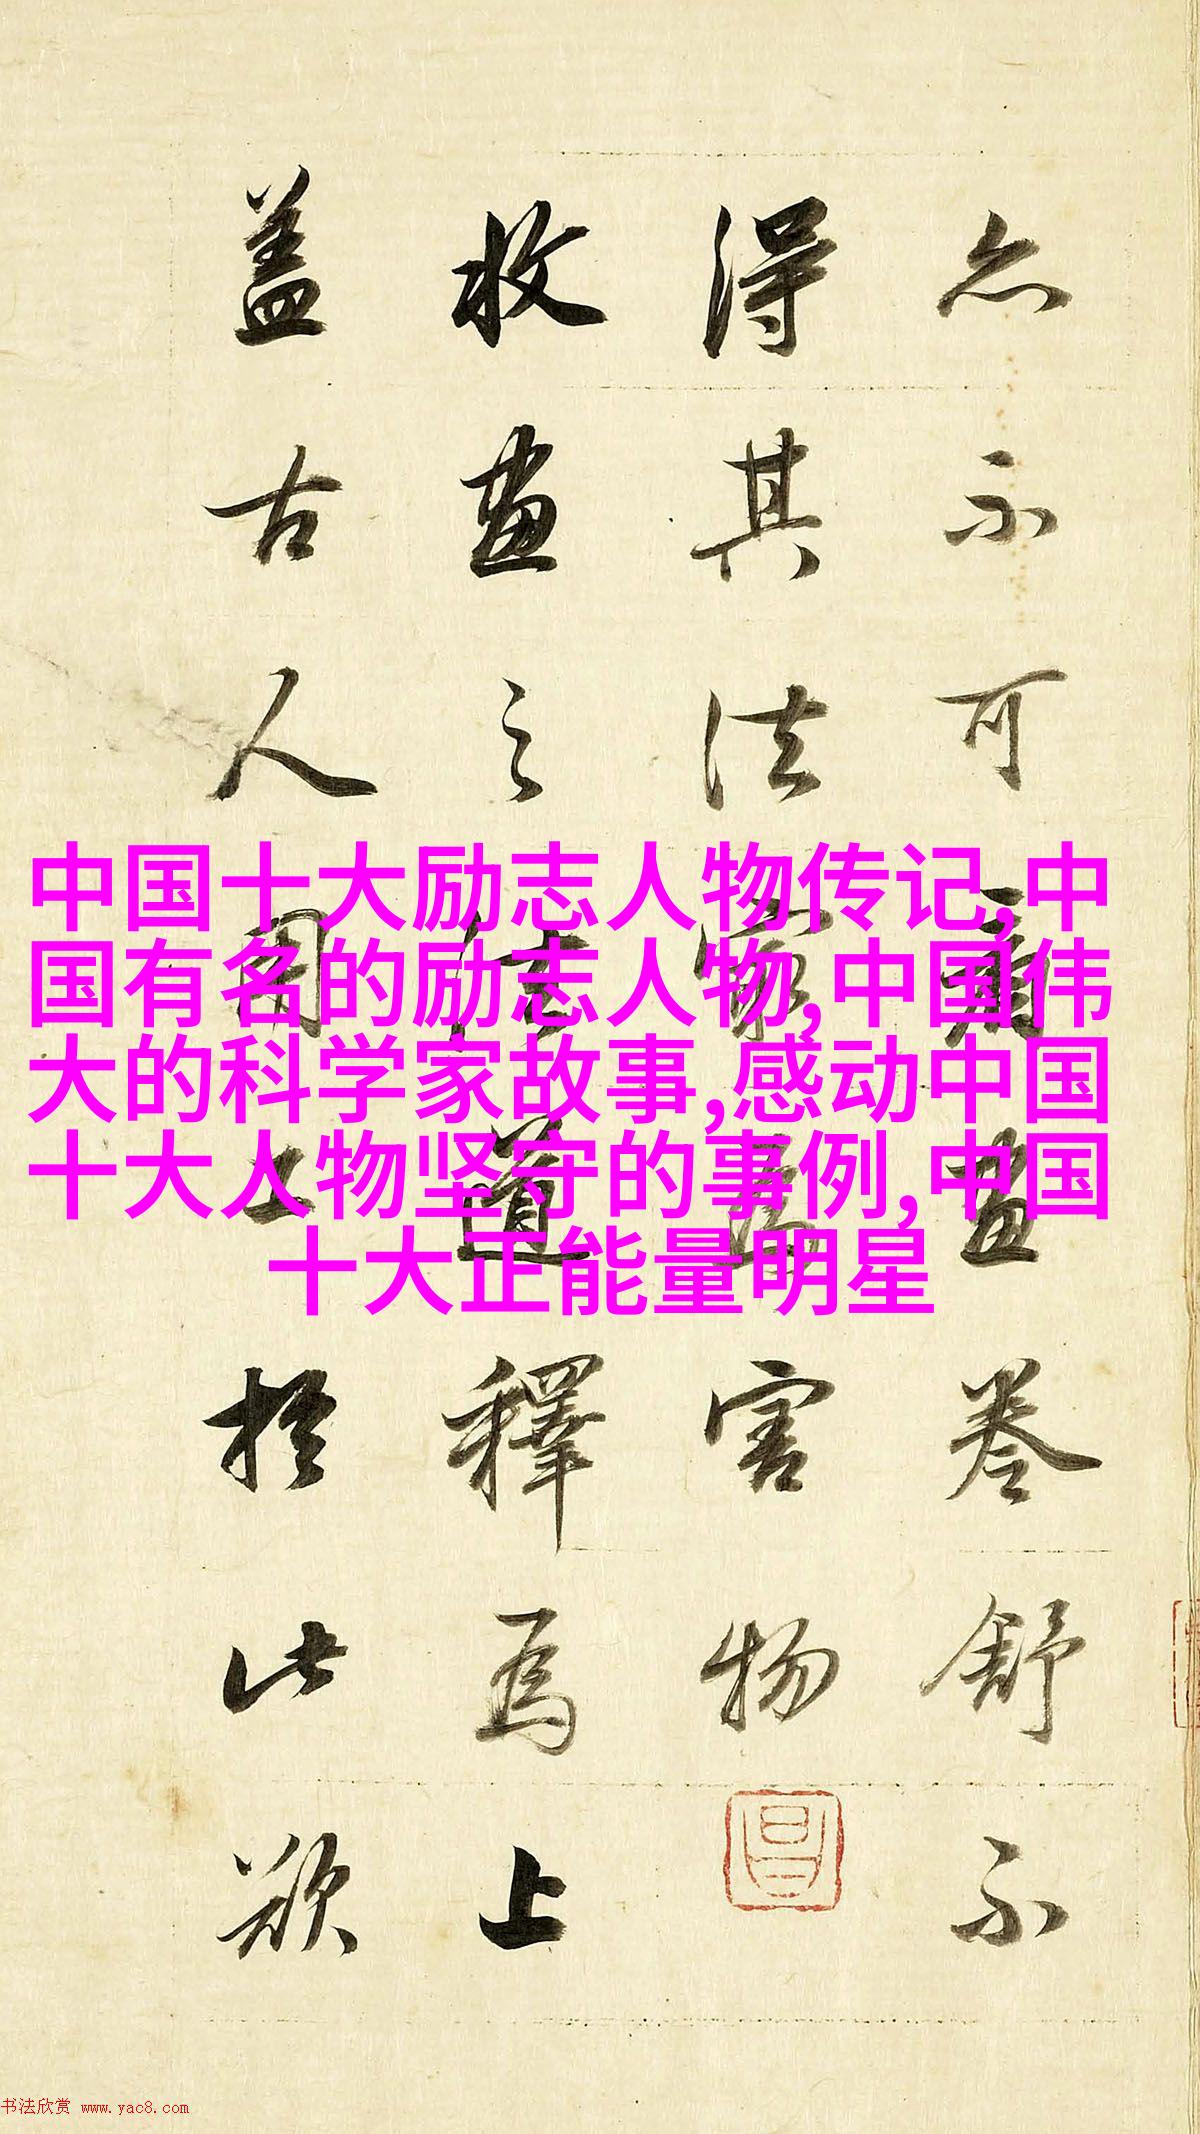 亦不可畫卷舒不
得其法害物
收畫之法道釋為上
蓋古人用工於此欲
中国十大励志人物传记,中
国有名的励志人物,中国伟
大的科学家故事,感动中国
十大人物坚守的事例,中国
十大正能量明星
书法欣赏 www.yac8.com